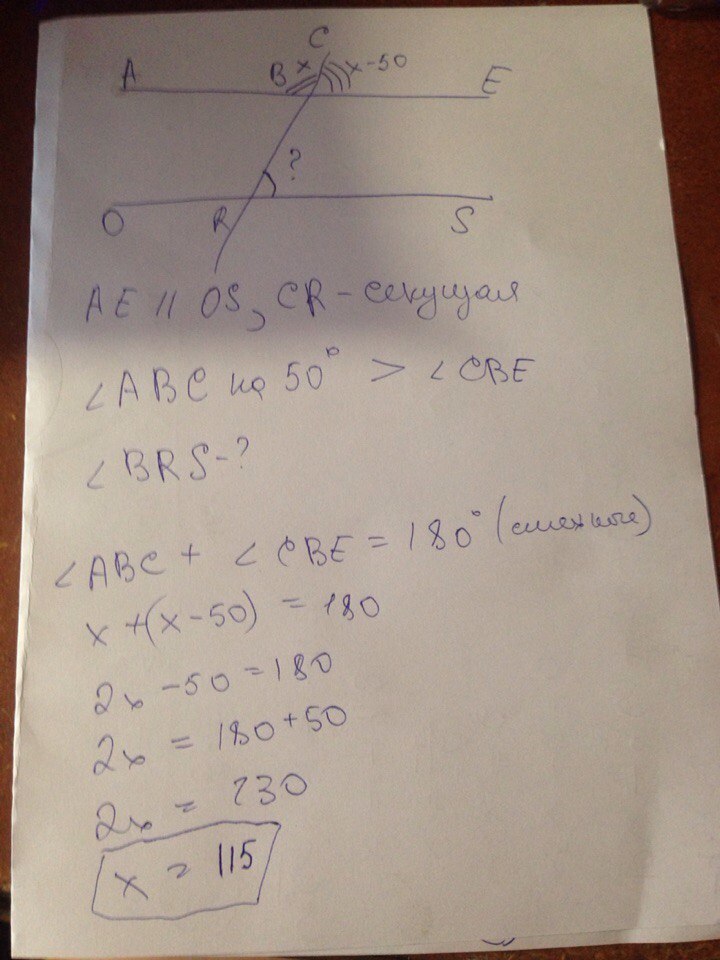 C
A B x x-50 E
?
O R S
AE || OS, CR - секущая
∠ABC на 50° > ∠CBE
∠BRS-?
∠ABC + ∠CBE = 180° (смежные)
x +(x-50) = 180
2x -50 = 180
2x = 180+50
2x = 230
x = 115